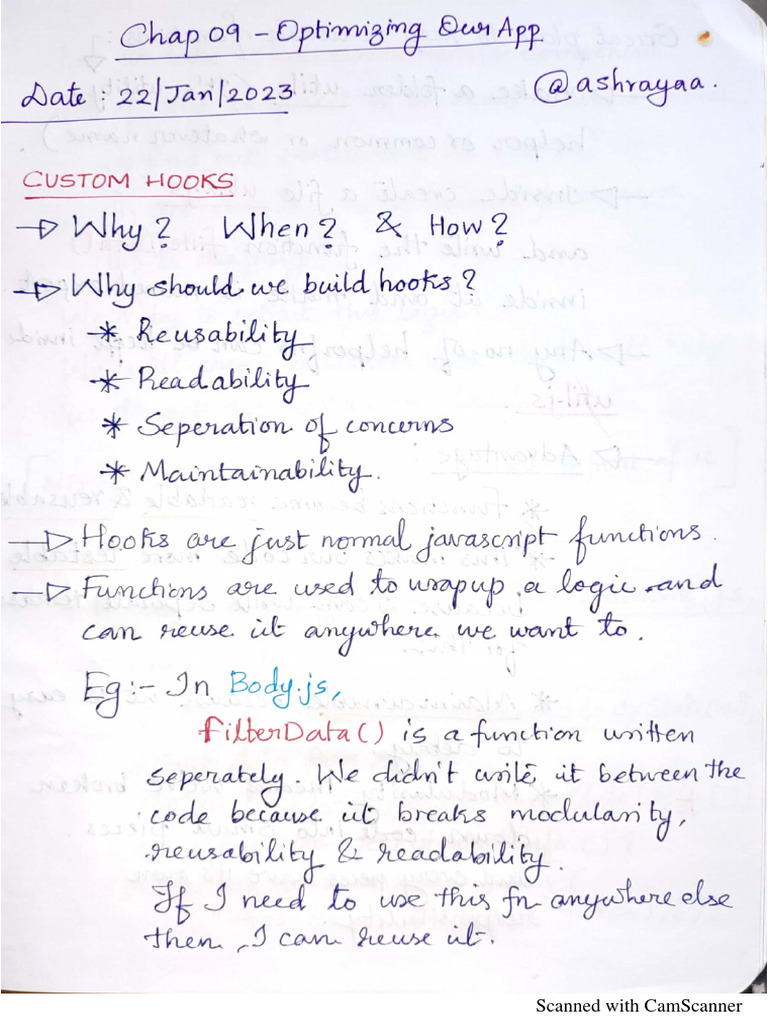 Chap 09 - Optimizing Our App
Date : 22/Jan/2023 @ashrayaa.
CUSTOM HOOKS
→ Why? When? & How?
→ Why should we build hooks?
* Reusability
* Readability
* Seperation of concerns
* Maintainability.
→ Hooks are just normal javascript functions.
→ Functions are used to wrapup a logic and
can reuse it anywhere we want to.
Eg:- In Body.js,
filterData() is a function written
seperately. We didn't write it between the
code because it breaks modularity,
reusability & readability.
If I need to use this fn anywhere else
then, I can reuse it.
Scanned with CamScanner